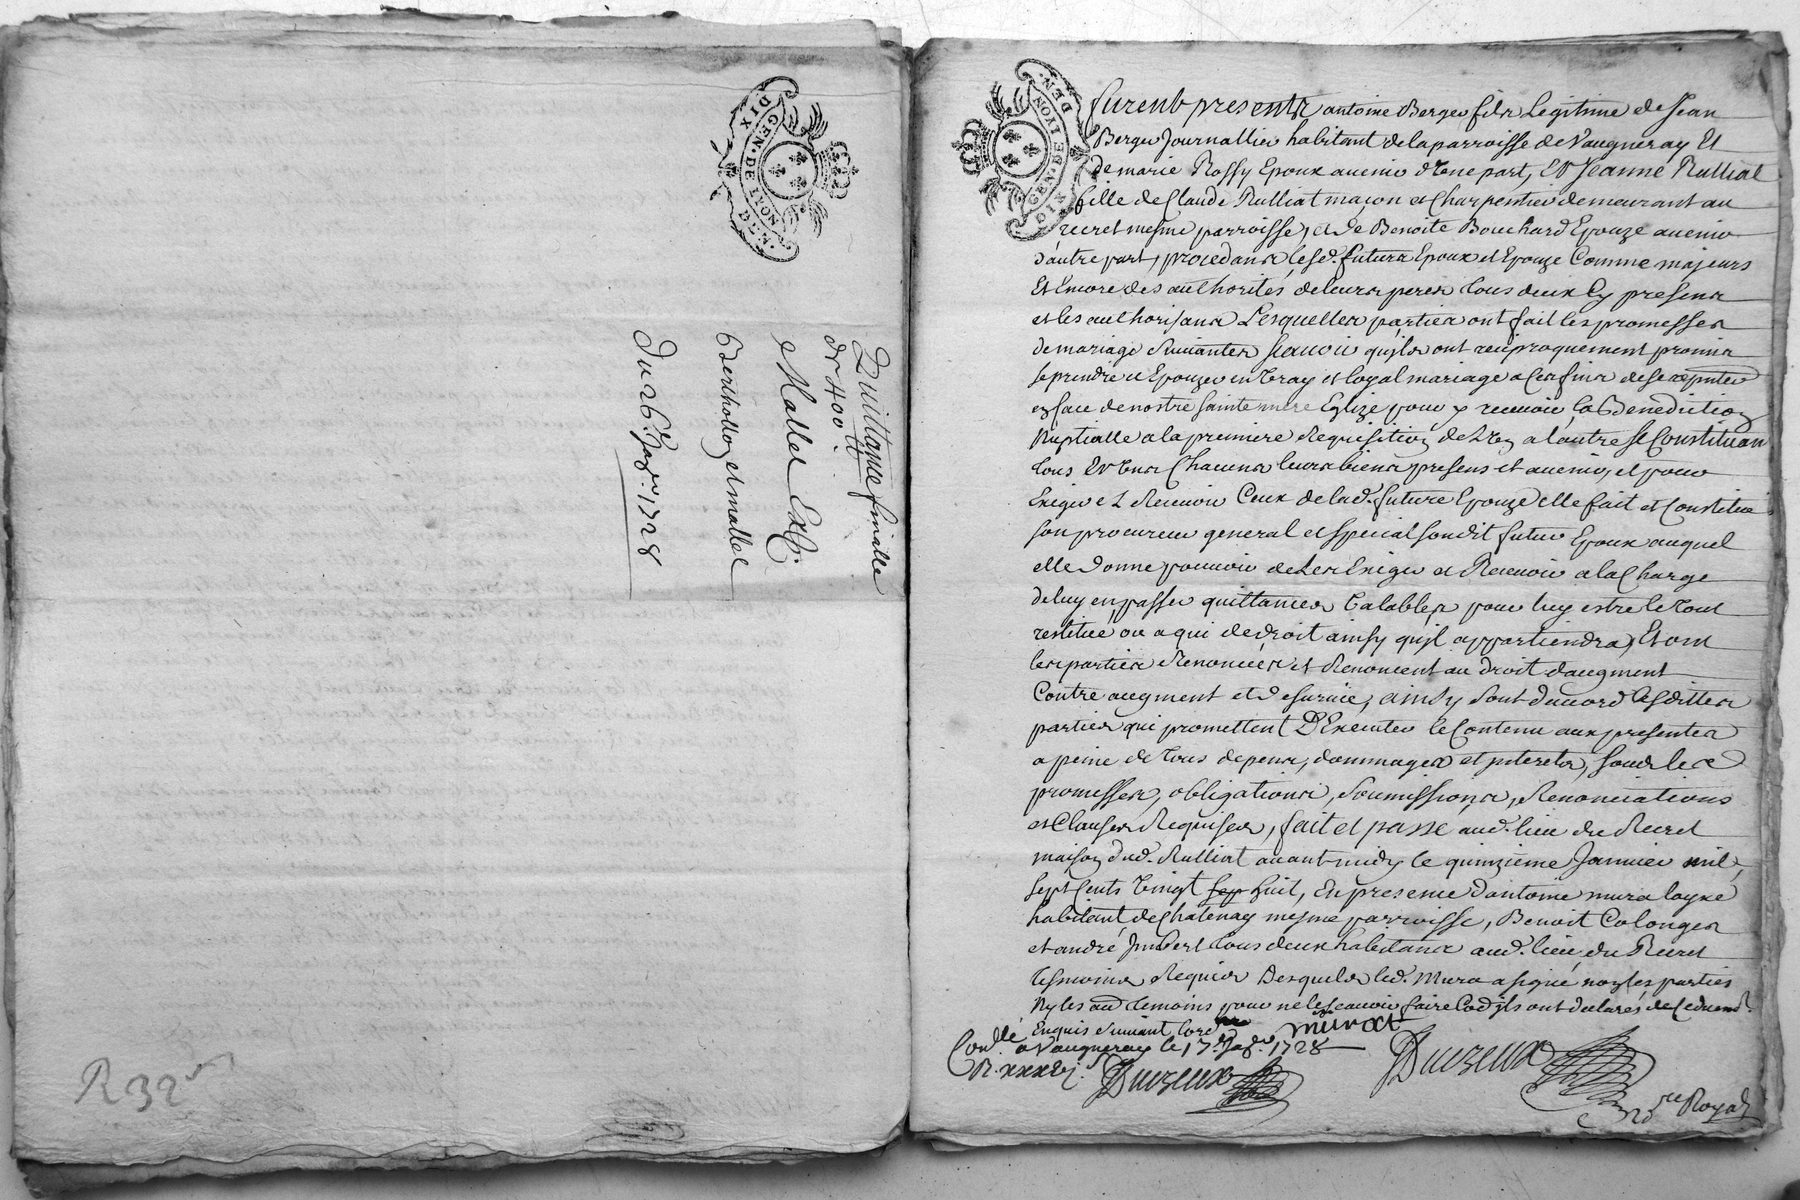 DIX DEN.
GEN. DE LYON
Quittance finalle
de 400 ll
Mallet
Bertholloy et mallet
Du 26e. Janr. 1728
R 32 s
DIX DEN.
GEN. DE LYON
furent presents antoine Berger fils Legitime de Jean
Berger Journallier habitant de la parroisse de Vaugneray Et
de marie Rossy Epoux avenir d'une part, Et Jeanne Rulliat
fille de Claude Rulliat maçon et Charpentier demeurant au
recret mesme parroisse, et de Benoite Bouchard Epouze avenir
d'autre part, procedans lesd. futurs Epoux et Epouze Comme majeurs
Et Encore des authorités de leurs peres tous deux Cy presens
et les authorisans Lesquelles parties ont fait les promesses
de mariage suivantes scavoir qu'ils ont reciproquement promis
se prendre et Epouzer en vray et loyal mariage a ces fins de se
en face de nostre sainte mere Eglize pour y recevoir la Benediction
Nuptialle a la premiere Requisition de L'un a l'autre se Constituan
tous Et uns Chacuns leurs biens presens et avenir, et pour
Exiger et Recevoir Ceux de lad. future Epouze elle fait et Constitue
son procureur general et special sondit futur Epoux auquel
elle donne pouvoir de Les Exiger et Recevoir a la Charge
de luy en passer quittances valables pour luy estre le tout
restitué ou a qui de droit ainsy qu'il appartiendra, Et ont
les parties Renoncées et Renoncent au droit d'augment
Contre augment et de survie, ainsy sont d'accord lesdittes
parties qui promettent D'Executer le Contenu aux presentes
a peine de tous depens, dommages et interets, sous les
promesses, obligations, soumissions, Renonciations
et Clauses Requises, fait et passé aud. lieu du Recret
maison dud. Rulliat avant midy le quinzieme Janvier mil
sept Cents vingt huit, En presence d'antoine murat
habitant de Chatenay mesme parroisse, Benoit Colonges
et andré Jmbert tous deux habitans aud. lieu du Recret
tesmoins Requis Desquels led. Murat a signé non les parties
Ny les autres temoins pour ne le scavoir faire ils ont declarés de Ce
Enquis suivant l'ore
murat
Conllé a Vaugneray le 17e. Janr. 1728
R. xxxxvj s.
Duvzeux
Duvzeux
nore Royal